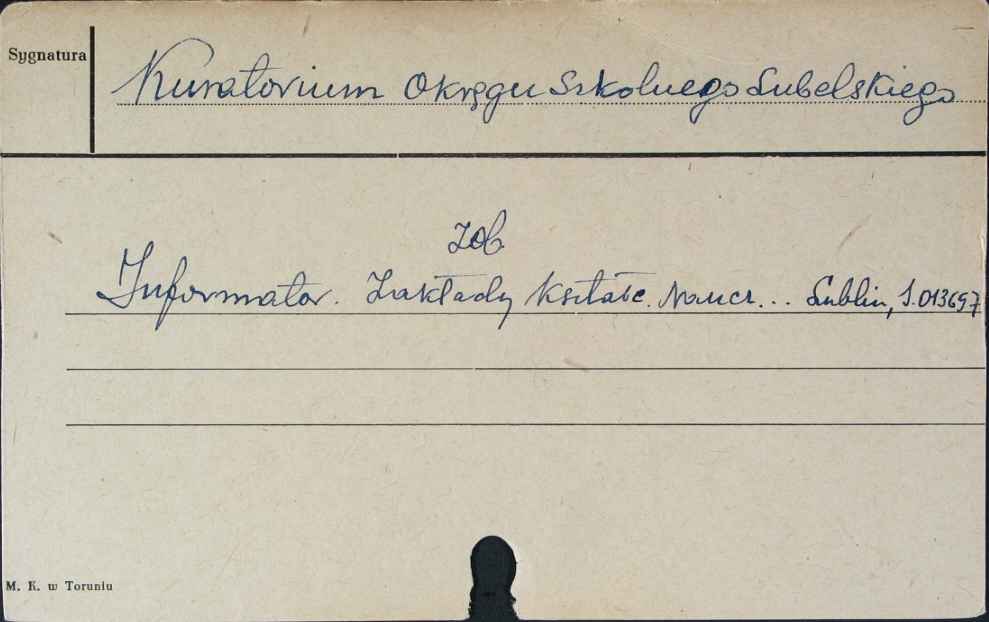 Sygnatura
Kuratorium Okręgu Szkolnego Lubelskiego
zob
Informator. Zakłady kształc. naucz... Lublin, S.013697
M. K. w Toruniu